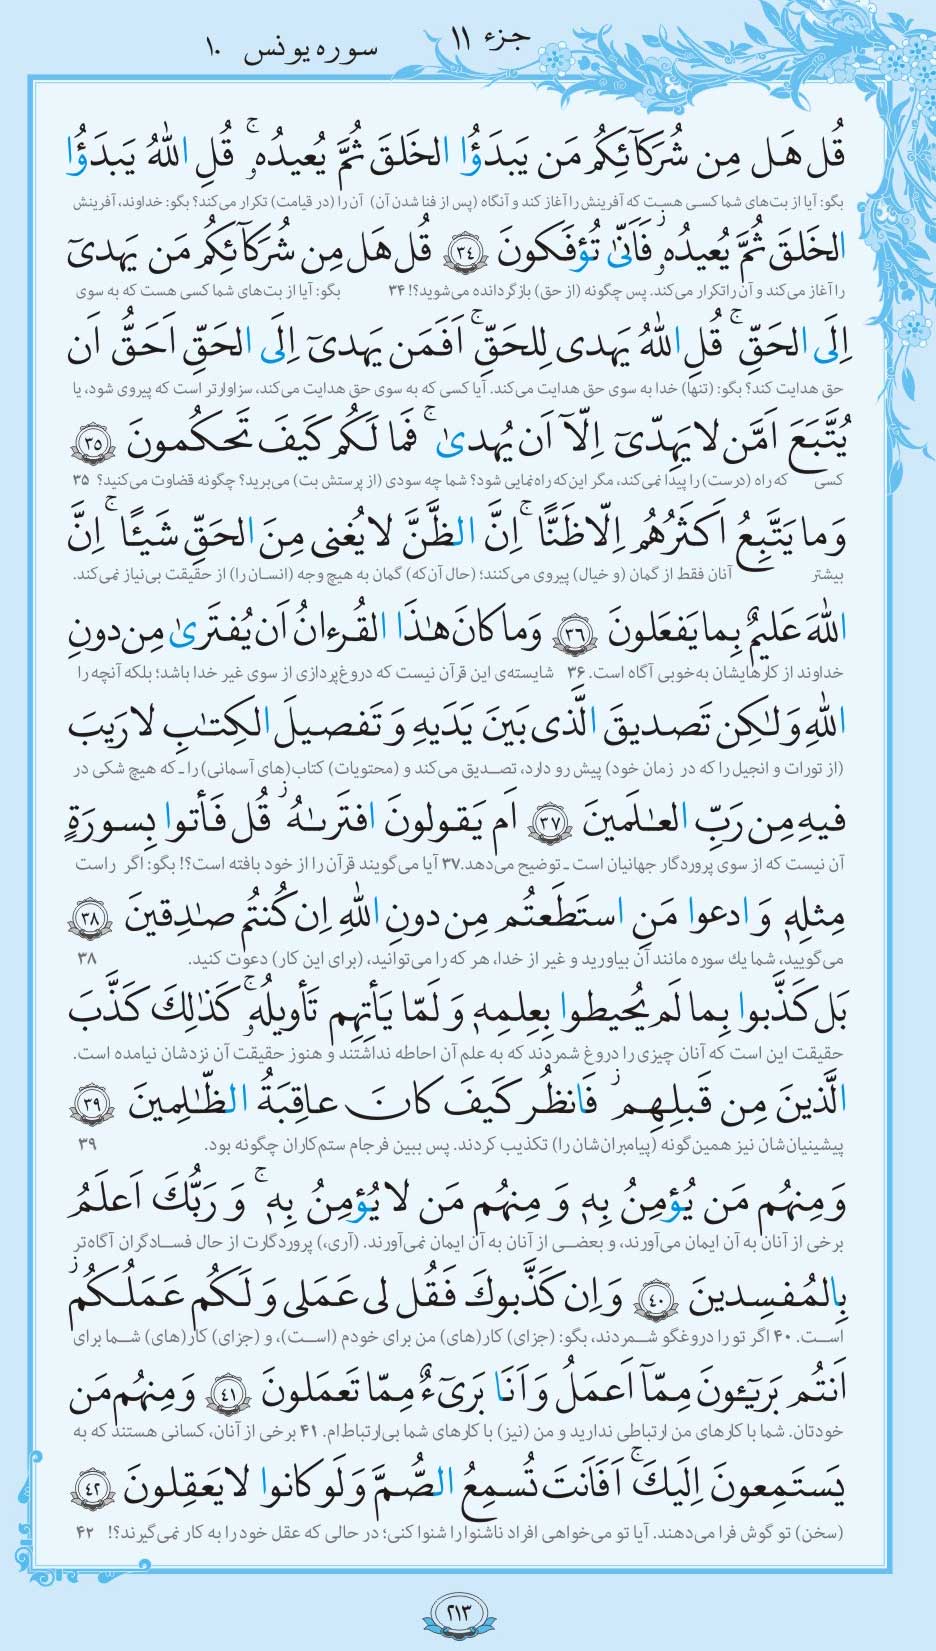 جزء ۱۱
سوره یونس ۱۰
قُل هَل مِن شُرَكَآئِكُم مَن يَبدَؤُا الخَلقَ ثُمَّ يُعيدُهۥ ۚ قُلِ اللّٰهُ يَبدَؤُا
بگو: آیا از بت‌های شما کسی هست که آفرینش را آغاز کند و آنگاه (پس از فنا شدن آن) آن را (در قیامت) تکرار می‌کند؟ بگو: خداوند، آفرینش
الخَلقَ ثُمَّ يُعيدُهۥ ۖ فَاَنّىٰ تُؤفَكونَ ﴿٣٤﴾ قُل هَل مِن شُرَكَآئِكُم مَن يَهدىٓ
را آغاز می‌کند و آن را تکرار می‌کند. پس چگونه (از حق) بازگردانده می‌شوید؟! ۳۴ بگو: آیا از بت‌های شما کسی هست که به سوی
اِلَى الحَقِّ ۚ قُلِ اللّٰهُ يَهدى لِلحَقِّ ۚ اَفَمَن يَهدىٓ اِلَى الحَقِّ اَحَقُّ اَن
حق هدایت کند؟ بگو: (تنها) خدا به سوی حق هدایت می‌کند. آیا کسی که به سوی حق هدایت می‌کند، سزاوارتر است که پیروی شود، یا
يُتَّبَعَ اَمَّن لا يَهِدّىٓ اِلّآ اَن يُهدىٰ ۚ فَما لَكُم كَيفَ تَحكُمونَ ﴿٣٥﴾
کسی که راه (درست) را پیدا نمی‌کند، مگر این‌که راه‌نمایی شود؟ شما چه سودی (از پرستش بت) می‌برید؟ چگونه قضاوت می‌کنید؟ ۳۵
وَ ما يَتَّبِعُ اَكثَرُهُم اِلّا ظَنًّا ۚ اِنَّ الظَّنَّ لا يُغنى مِنَ الحَقِّ شَيـًٔا ۚ اِنَّ
بیشتر آنان فقط از گمان (و خیال) پیروی می‌کنند؛ (حال آن‌که) گمان به هیچ وجه (انسان را) از حقیقت بی‌نیاز نمی‌کند.
اللّٰهَ عَليمٌ بِما يَفعَلونَ ﴿٣٦﴾ وَ ما كانَ هٰذَا القُرءانُ اَن يُفتَرىٰ مِن دونِ
خداوند از کارهایشان به‌خوبی آگاه است. ۳۶ شایسته‌ی این قرآن نیست که دروغ‌پردازی از سوی غیر خدا باشد؛ بلکه آنچه را
اللّٰهِ وَ لٰكِن تَصديقَ الَّذى بَينَ يَدَيهِ وَ تَفصيلَ الكِتٰبِ لا رَيبَ
(از تورات و انجیل را که در زمان خود) پیش رو دارد، تصدیق می‌کند و (محتویات) کتاب(های آسمانی) را ـ که هیچ شکی در
فيهِ مِن رَبِّ العٰلَمينَ ﴿٣٧﴾ اَم يَقولونَ افتَرىٰهُ ۖ قُل فَأتوا بِسورَةٍ
آن نیست که از سوی پروردگار جهانیان است ـ توضیح می‌دهد. ۳۷ آیا می‌گویند قرآن را از خود بافته است؟! بگو: اگر راست
مِثلِهۦ وَ ادعوا مَنِ استَطَعتُم مِن دونِ اللّٰهِ اِن كُنتُم صٰدِقينَ ﴿٣٨﴾
می‌گویید، شما یك سوره مانند آن بیاورید و غیر از خدا، هر که را می‌توانید، (برای این کار) دعوت کنید. ۳۸
بَل كَذَّبوا بِما لَم يُحيطوا بِعِلمِهۦ وَ لَمّا يَأتِهِم تَأويلُهۥ ۚ كَذٰلِكَ كَذَّبَ
حقیقت این است که آنان چیزی را دروغ شمردند که به علم آن احاطه نداشتند و هنوز حقیقت آن نزدشان نیامده است.
الَّذينَ مِن قَبلِهِم ۖ فَانظُر كَيفَ كانَ عاقِبَةُ الظّٰلِمينَ ﴿٣٩﴾
پیشینیان‌شان نیز همین‌گونه (پیامبران‌شان را) تکذیب کردند. پس ببین فرجام ستم‌کاران چگونه بود. ۳۹
وَ مِنهُم مَن يُؤمِنُ بِهۦ وَ مِنهُم مَن لا يُؤمِنُ بِهۦ ۚ وَ رَبُّكَ اَعلَمُ
برخی از آنان به آن ایمان می‌آورند، و بعضی از آنان به آن ایمان نمی‌آورند. (آری،) پروردگارت از حال فسادگران آگاه‌تر
بِالمُفسِدينَ ﴿٤٠﴾ وَ اِن كَذَّبوكَ فَقُل لى عَمَلى وَ لَكُم عَمَلُكُم ۖ
است. ۴۰ اگر تو را دروغگو شمردند، بگو: (جزای) کار(های) من برای خودم (است)، و (جزای) کار(های) شما برای
اَنتُم بَريـٔونَ مِمّآ اَعمَلُ وَ اَنَا بَرىٓءٌ مِمّا تَعمَلونَ ﴿٤١﴾ وَ مِنهُم مَن
خودتان. شما با کارهای من ارتباطی ندارید و من (نیز) با کارهای شما بی‌ارتباط‌ام. ۴۱ برخی از آنان، کسانی هستند که به
يَستَمِعونَ اِلَيكَ ۚ اَفَاَنتَ تُسمِعُ الصُّمَّ وَ لَو كانوا لا يَعقِلونَ ﴿٤٢﴾
(سخن) تو گوش فرا می‌دهند. آیا تو می‌خواهی افراد ناشنوا را شنوا کنی؛ در حالی که عقل خود را به کار نمی‌گیرند؟! ۴۲
۲۱۳